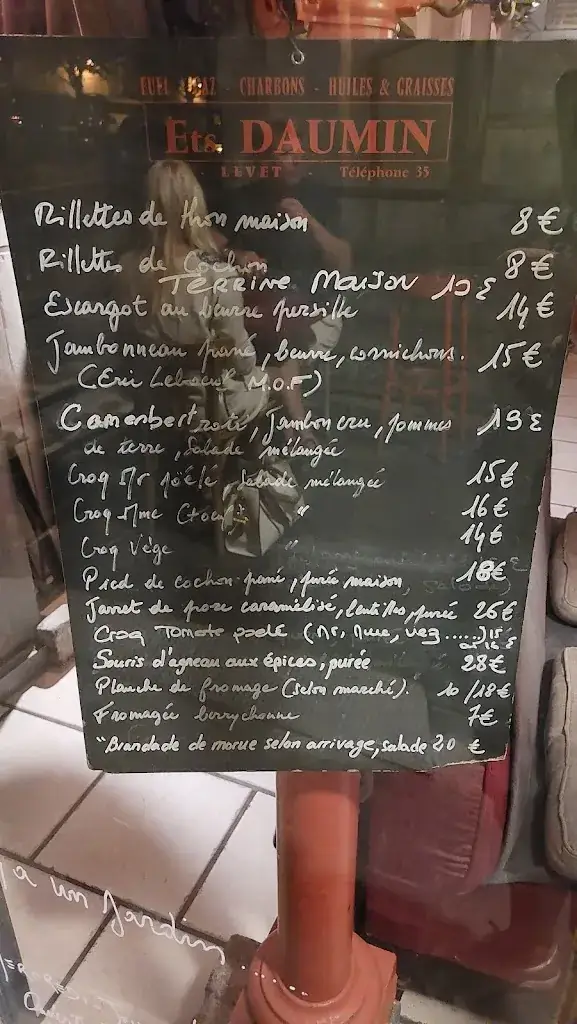 FUEL GAZ - CHARBONS - HUILES & GRAISSES
Ets. DAUMIN
LEVET - Téléphone 35
Rillettes de thon maison 8€
Rillettes de Cochon 8€
TERRINE MAISON 10€
Escargot au beurre persillé 14€
Jambonneau pané, beurre, cornichons. 15€
(Eric Leboeuf M.O.F)
Camenbert roti, Jambon cru, pommes 19€
de terre, Salade mélangée
Croq Mr poêle, Salade mélangée 15€
Croq Mme " 16€
Croq Vége " 14€
Pied de cochon pané, purée maison, 18€
Jarret de porc caramélisé, lentilles, purée 26€
Croq Tomate pesto (Mr, Mme, veg.....) 15
Souris d'agneau aux épices, purée 28€
Planche de fromage (selon marché). 10/18€
Fromagée berrychonne 7€
"Brandade de morue selon arrivage, salade 20 €
a un Jardin......